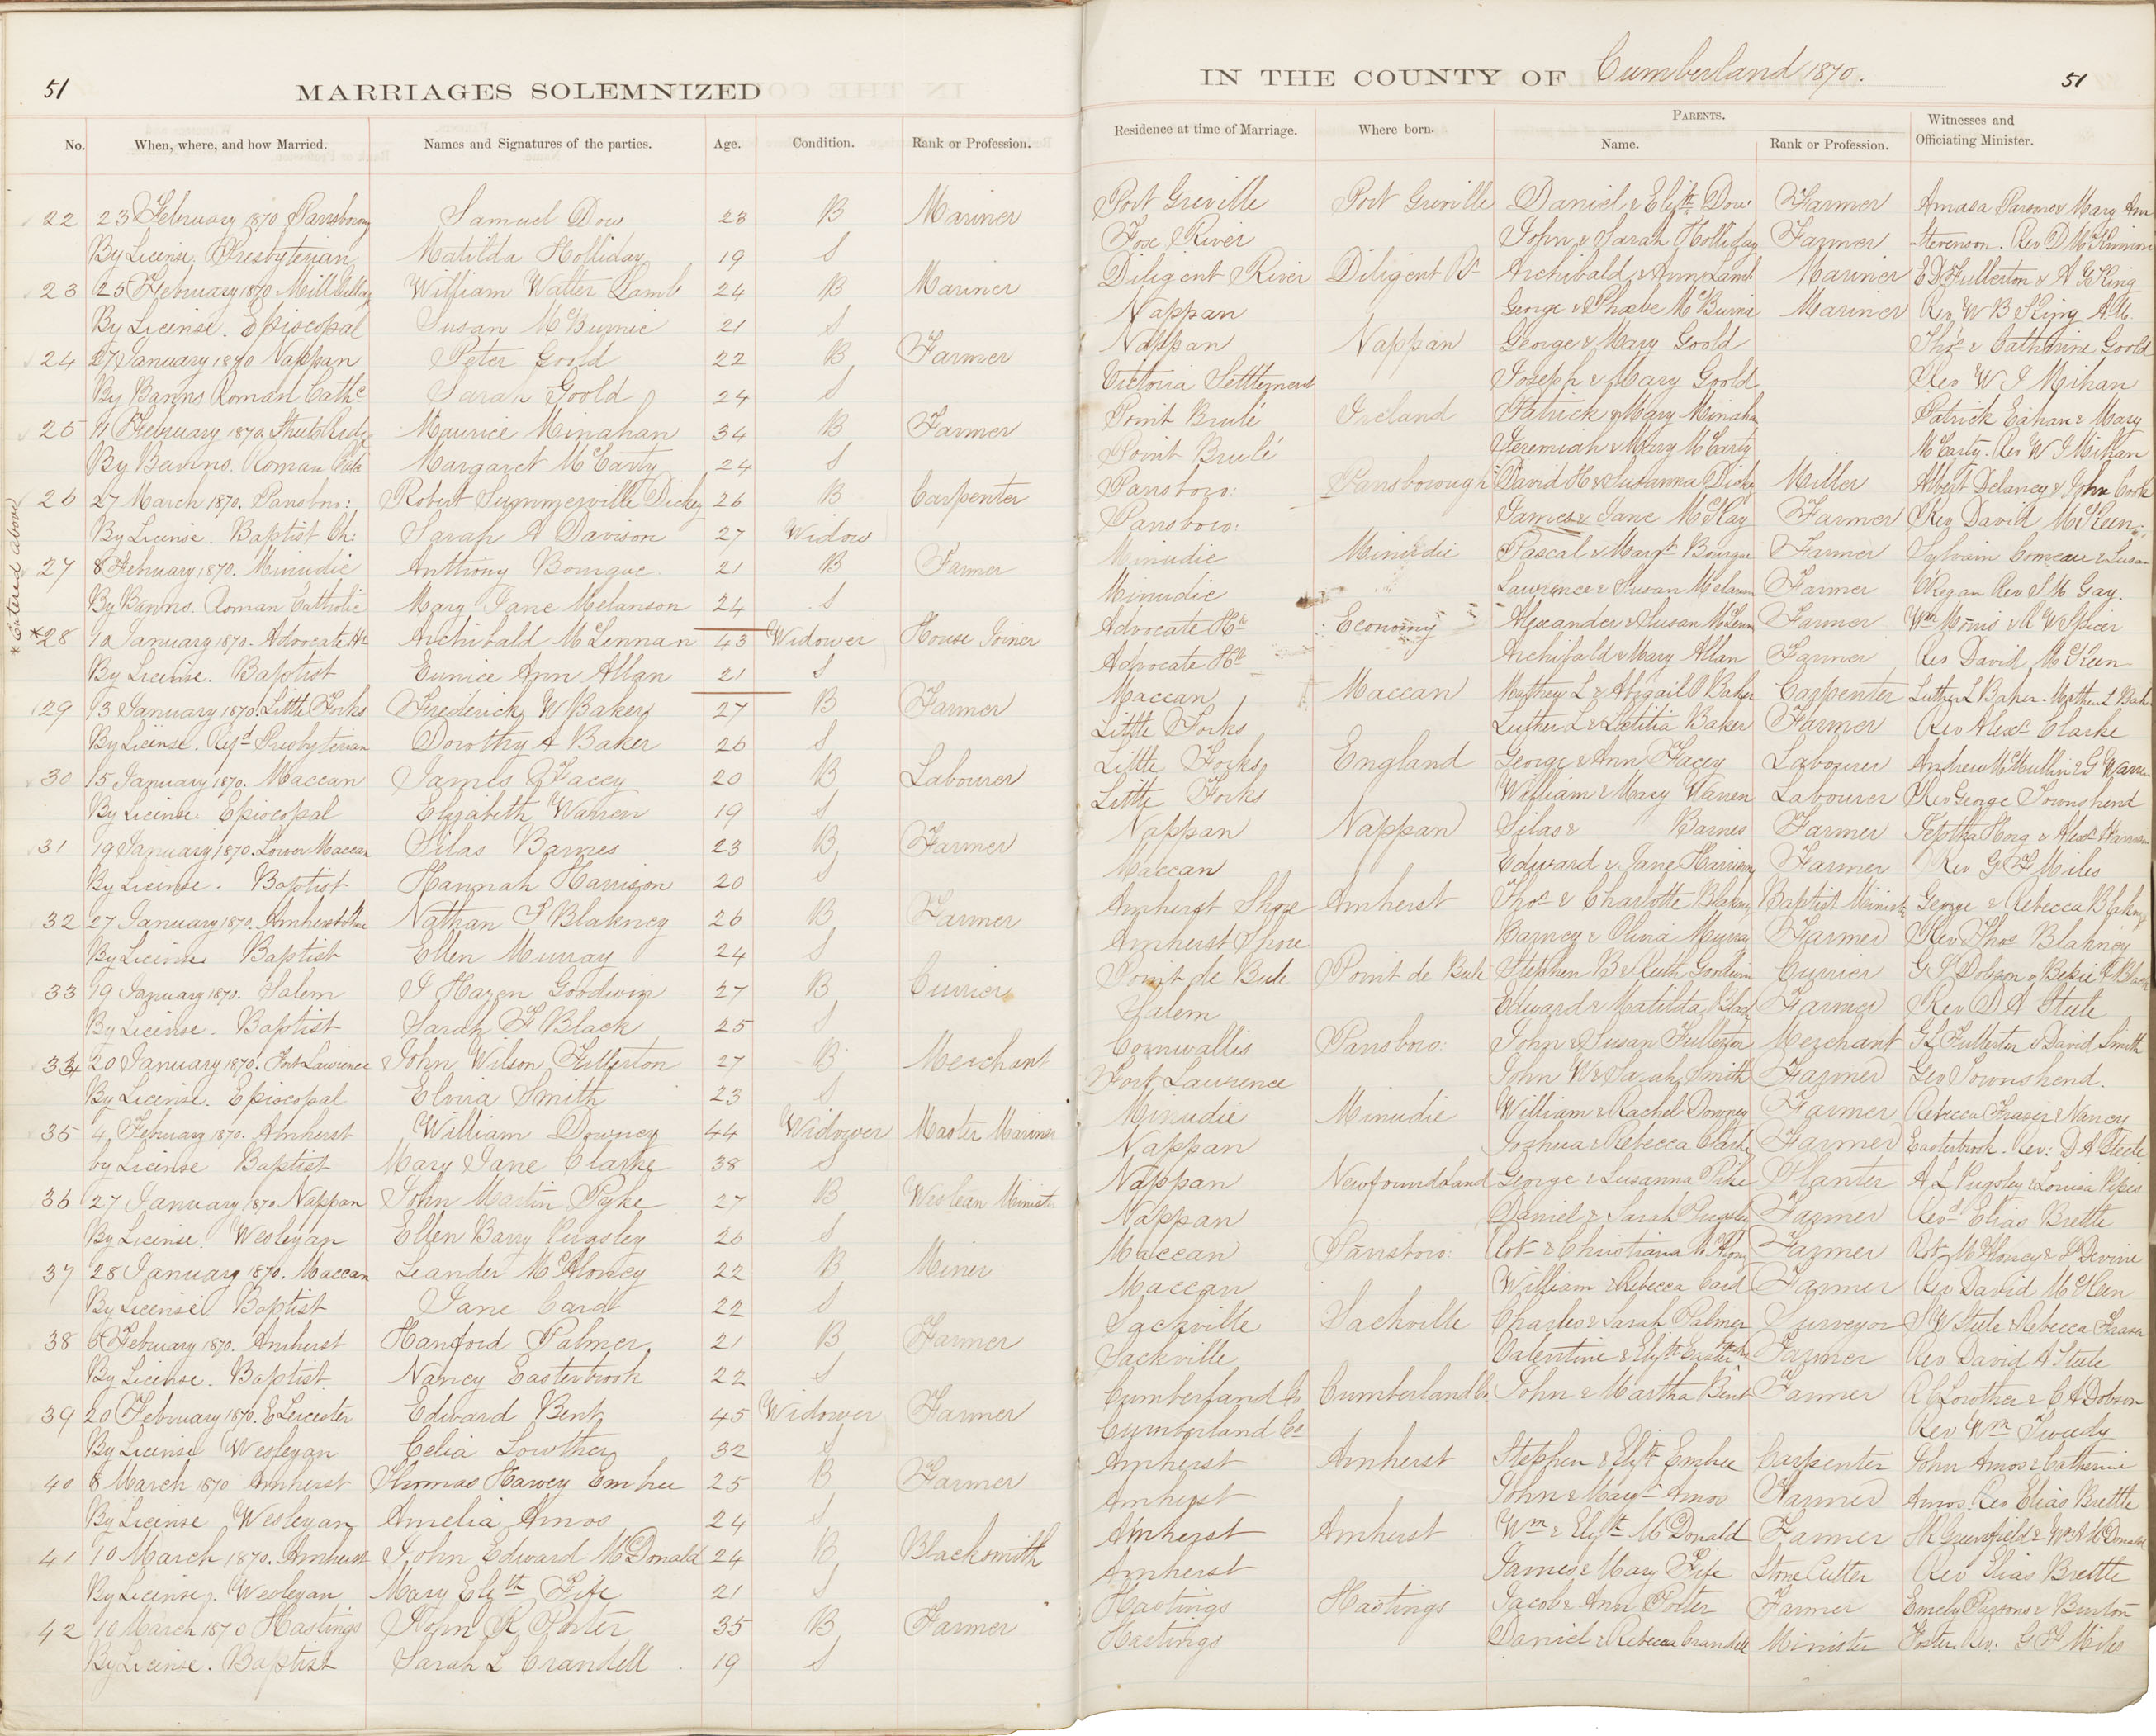 51
MARRIAGES SOLEMNIZED
IN THE COUNTY OF Cumberland 1870.
51
No. When, where, and how Married. Names and Signatures of the parties. Age. Condition. Rank or Profession. Residence at time of Marriage. Where born. PARENTS. Name. Rank or Profession. Witnesses and Officiating Minister.
22 23 February 1870 Parrsborough Samuel Dow 28 B Mariner Port Greville Port Greville Daniel & Elizth Dow Farmer Amasa Mary Ann
By License, Presbyterian Matilda Holliday 19 S Fox River John & Sarah Holliday Farmer Stevenson. Rev D McKinnon
23 25 February 1870 Mill Village William Walter Lamb 24 B Mariner Diligent River Diligent Rr Archibald & Ann Lamb Mariner E D Fullerton & A G King
By License. Episcopal Susan McBurnie 21 S Nappan George & Phoebe McBurnie Mariner Rev W B King A.M.
24 27 January 1870 Nappan Peter Goold 22 B Farmer Nappan Nappan George & Mary Goold Thos & Catherine Goold
By Banns Roman Cathc Sarah Goold 24 S Victoria Settlement Joseph & Mary Goold Rev W J Mihan
25 11 February 1870, Maurice Minahan 34 B Farmer Point Brulé Ireland Patrick & Mary Minahan Patrick & Mary
By Banns. Roman Margaret McCarty 24 S Point Brulé Jeremiah & Mary McCarty McCarty. Rev W J Mihan
26 27 March 1870. Parrsboro: Robert Summerville Dickey 26 B Carpenter Parrsboro: Parrsborough David H & Susanna Dickey Miller Albert Delaney & John Cook
By License. Baptist Ch: Sarah A Davison 27 Widow Parrsboro: James & Jane McKay Farmer Rev David McKeen
27 8 February, 1870. Minudie Anthony Bourque 21 B Farmer Minudie Minudie Pascal & Margt Bourque Farmer Sylvain Comeau & Susan
By Banns. Roman Catholic Mary Jane Melanson 24 S Minudie Lawrence & Susan Melanson Farmer O'Regan Rev S M Gay.
* Entered above
*28 10 January 1870. Advocate Hr Archibald McLennan 43 Widower House Joiner Advocate Hr Economy Alexander & Susan McLennan Farmer Wm Morris & R W Spicer
By License. Baptist Eunice Ann Allan 21 S Advocate Hr Archibald & Mary Allan Farmer Rev David McKeen
29 13 January 1870. Little Forks Frederick W Baker 27 B Farmer Maccan Maccan Mathew L & Abigail Baker Carpenter Luther L Baker. Mathew L Baker
By License. Refd Presbyterian Dorothy A Baker 26 S Little Forks Luther L & Letitia Baker Farmer Rev Alexr Clarke
30 15 January 1870. Maccan James Facey 20 B Labourer Little Forks England George & Ann Facey Labourer Andrew McMullin & G Warren
By License Episcopal Elizabeth Warren 19 S Little Forks William & Mary Warren Labourer Rev George Townshend
31 19 January 1870. Lower Maccan Silas Barnes 23 B Farmer Nappan Nappan Silas & Barnes Farmer & Alexr Harrison
By License. Baptist Hannah Harrison 20 S Maccan Edward & Jane Harrison Farmer Rev G F Miles
32 27 January 1870. Amherst Shore Nathan S Blakney 26 B Farmer Amherst Shore Amherst Thos & Charlotte Blakney Baptist Minister George & Rebecca Blakney
By License Baptist Ellen Murray 24 S Amherst Shore Barney & Olivia Murray Farmer Rev Thos Blakney
33 19 January 1870. Salem J Hazen Goodwin 27 B Currier Point de Bute Point de Bute Stephen B & Ruth Goodwin Currier G S Dobson & Black
By License. Baptist Sarah F Black 25 S Salem Edward & Matilda Black Farmer Rev D A Steele
34 20 January 1870. Fort Lawrence John Wilson Fullerton 27 B Merchant Cornwallis Parrsboro: John & Susan Fullerton Merchant G L Fullerton & David Smith
By License. Episcopal Elvira Smith 23 S Fort Lawrence John W & Sarah Smith Farmer Geo Townshend.
35 4 February 1870. Amherst William Downey 44 Widower Master Mariner Minudie Minudie William & Rachel Downey Farmer Rebecca Fraser & Nancy
by License Baptist Mary Jane Clarke 38 S Nappan Joshua & Rebecca Clarke Farmer Easterbrook. Rev: D A Steele
36 27 January 1870 Nappan John Martin Pyke 27 B Weslean Ministr Nappan Newfoundland George & Susanna Pike Planter A L Pugsley & Louisa Pipes
By License. Wesleyan Ellen Barry Pugsley 26 S Nappan Daniel & Sarah Pugsley Farmer Revd Elias Brettle
37 28 January 1870. Maccan Leander McAloney 22 B Miner Maccan Parrsboro: Robt & Christiana Farmer Robt McAloney & Devine
By License Baptist Jane Card 22 S Maccan William & Rebecca Card Farmer Rev David McKeen
38 5 February 1870. Amherst Hanford Palmer 21 B Farmer Sackville Sackville Charles & Sarah Palmer Surveyor S W Steele & Rebecca Fraser
By License. Baptist Nancy Easterbrook 22 S Sackville Valentine & Elizth Farmer Rev David A Steele
39 20 February 1870. E Leicester Edward Bent 45 Widower Farmer Cumberland Co Cumberland Co. John & Martha Bent Farmer R C Lowther & C A Dobson
By License Wesleyan Celia Lowther 32 S Cumberland Co Rev Wm Tweedy
40 8 March 1870 Amherst Thomas Harvey Embree 25 B Farmer Amherst Amherst Stephen & Elizth Embree Carpenter John Amos & Catherine
By License Wesleyan Amelia Amos 24 S Amherst John & Margt Amos Farmer Amos. Rev Elias Brettle
41 10 March 1870. Amherst John Edward McDonald 24 B Blacksmith Amherst Amherst Wm & Elizth McDonald Farmer Greenfield & McDonald
By License. Wesleyan Mary Elizth Fife 21 S Amherst James & Mary Fife Stone Cutter Rev Elias Brettle
42 10 March 1870 Hastings John R Porter 35 B Farmer Hastings Hastings Jacob & Ann Porter Farmer Emely Parsons & Burton
By License. Baptist Sarah L Crandell 19 S Hastings Daniel & Rebecca Crandell Minister Foster. Rev: G F Miles